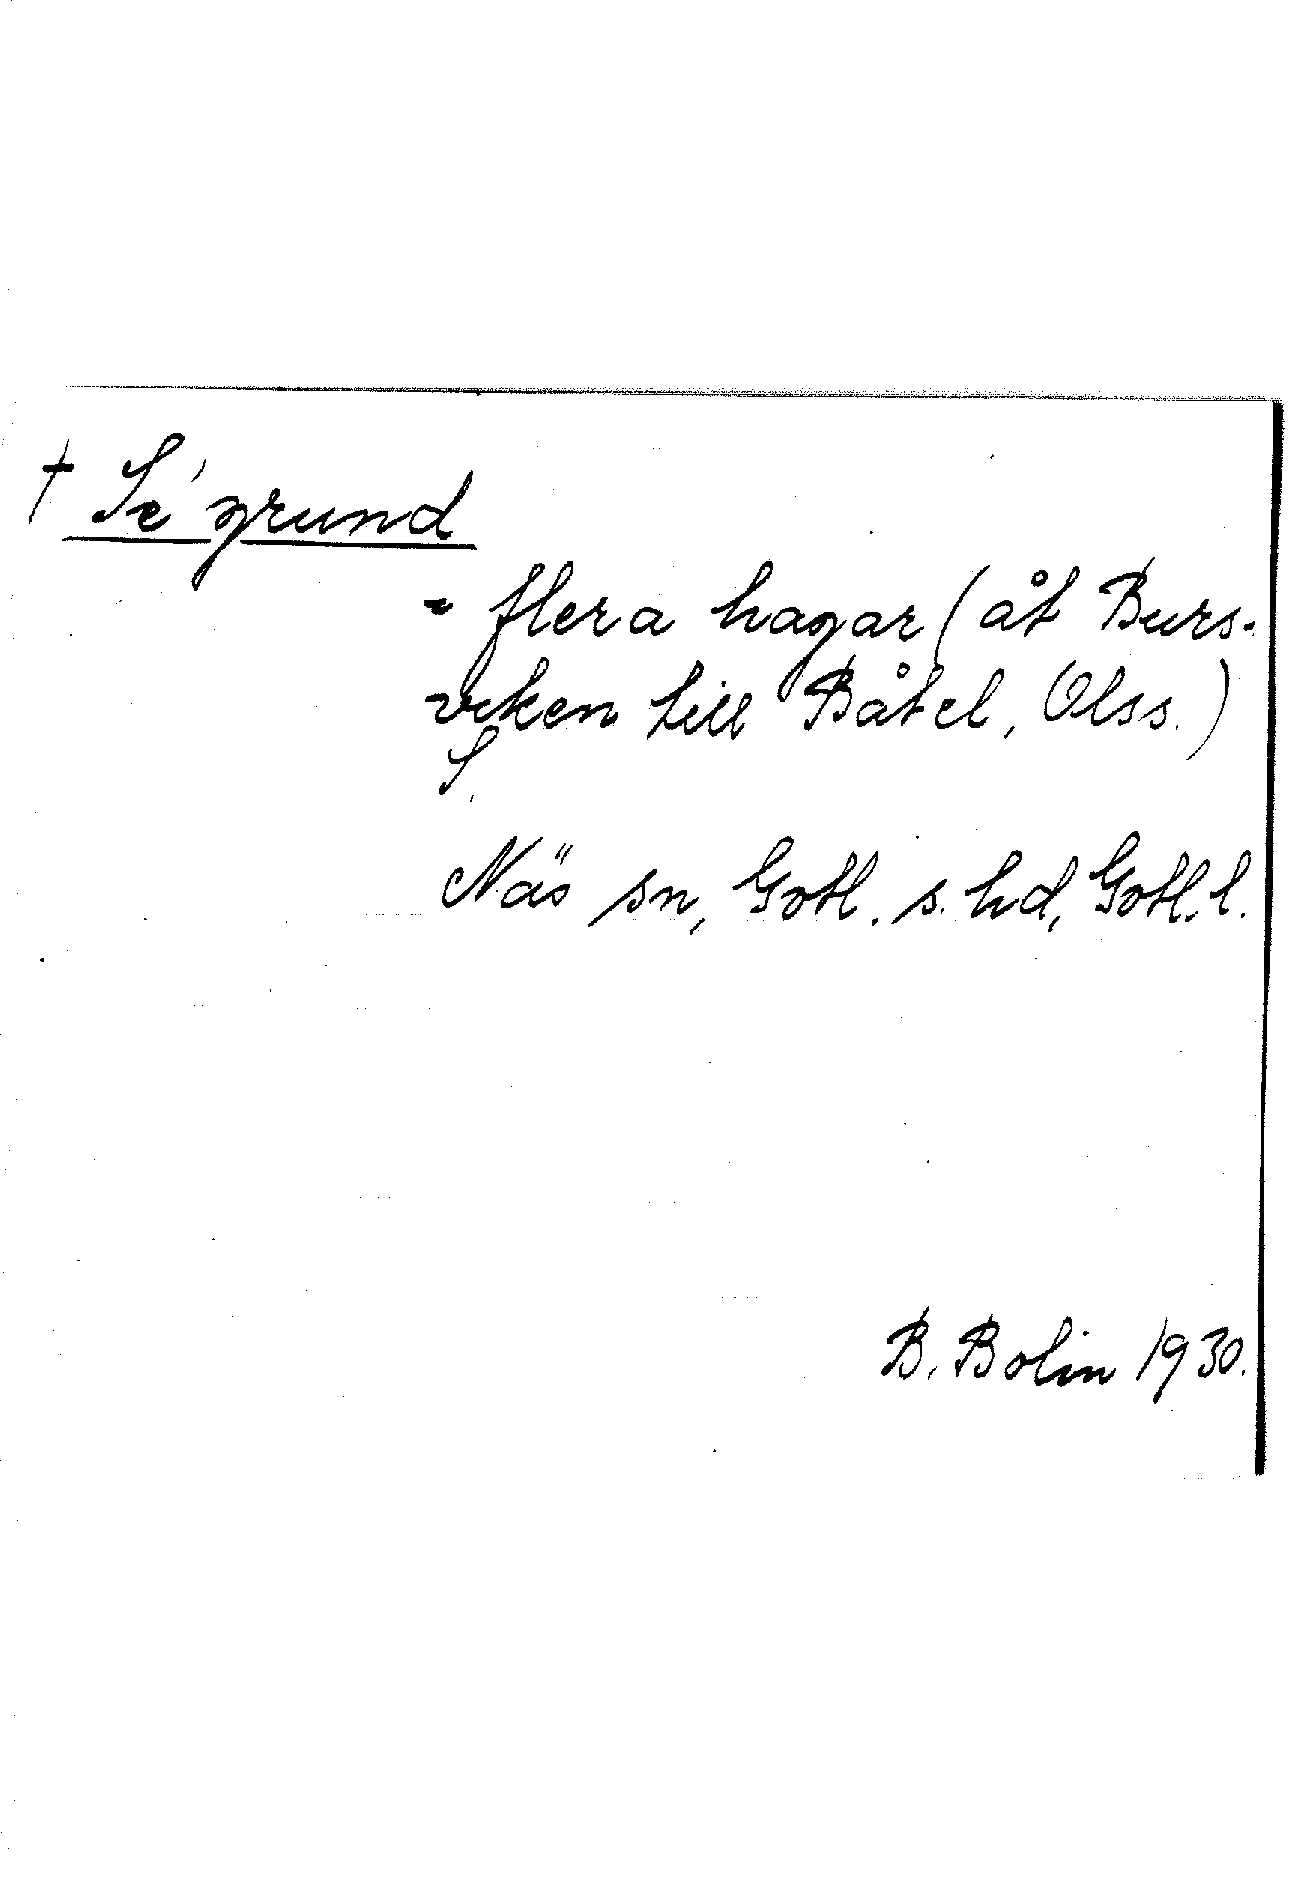 † Se'grund
= flera hagar (åt Burs-
viken till Båtel, Olss.)
S.
Näs sn, Gotl. s. hd, Gotl. l.
B. Bolin 1930.